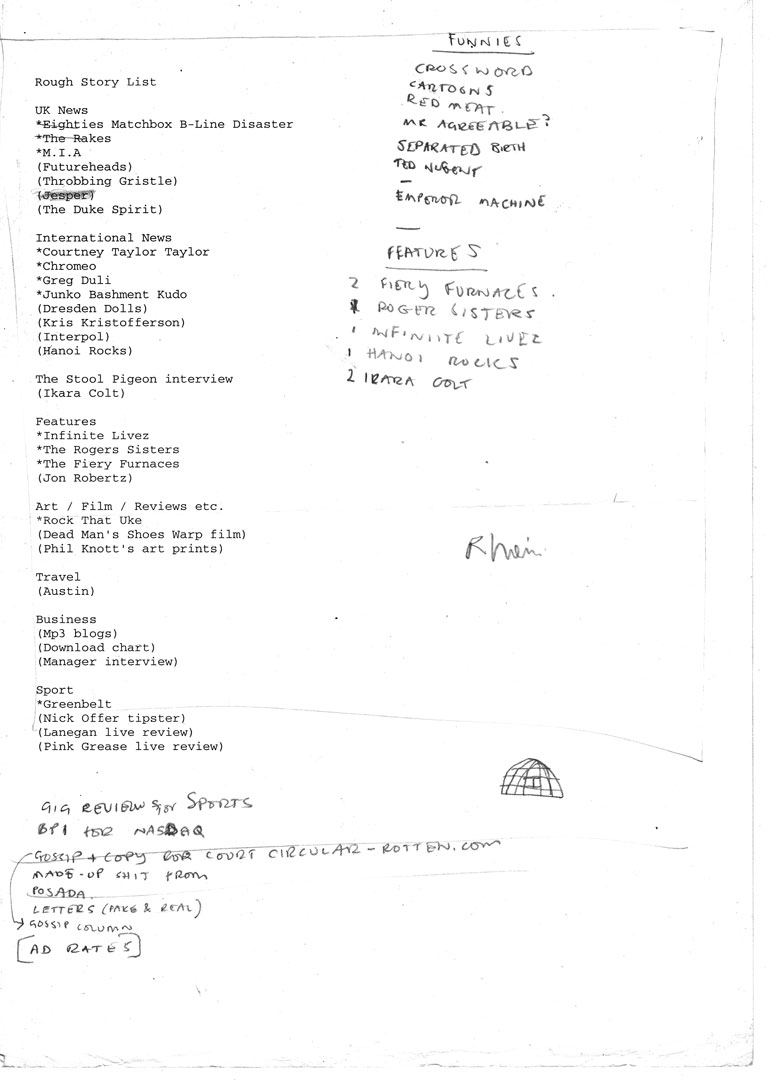 Rough Story List
UK News
*Eighties Matchbox B-Line Disaster
*The Rakes
*M.I.A
(Futureheads)
(Throbbing Gristle)
(Jesper)
(The Duke Spirit)
International News
*Courtney Taylor Taylor
*Chromeo
*Greg Duli
*Junko Bashment Kudo
(Dresden Dolls)
(Kris Kristofferson)
(Interpol)
(Hanoi Rocks)
The Stool Pigeon interview
(Ikara Colt)
Features
*Infinite Livez
*The Rogers Sisters
*The Fiery Furnaces
(Jon Robertz)
Art / Film / Reviews etc.
*Rock That Uke
(Dead Man's Shoes Warp film)
(Phil Knott's art prints)
Travel
(Austin)
Business
(Mp3 blogs)
(Download chart)
(Manager interview)
Sport
*Greenbelt
(Nick Offer tipster)
(Lanegan live review)
(Pink Grease live review)
FUNNIES
CROSSWORD
CARTOONS
RED MEAT.
MR AGREEABLE?
SEPARATED BIRTH
TED NUGENT
—
EMPEROR MACHINE
—
FEATURES
2 FIERY FURNACES.
ROGER SISTERS
1 INFINITE LIVEZ
1 HANOI ROCKS
2 IKARA COLT
GIG REVIEWS for SPORTS
BPI FOR NASDAQ
GOSSIP + COPY FOR COURT CIRCULAR - ROTTEN.COM
MADE-UP SHIT FROM
POSADA
LETTERS (FAKE & REAL)
GOSSIP COLUMN
[AD RATES]